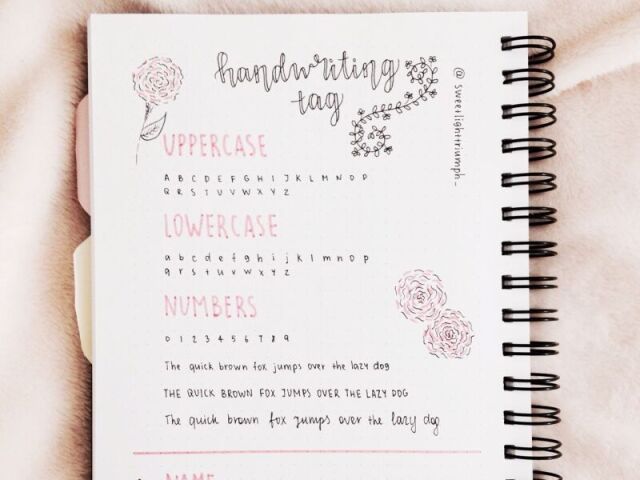 handwriting
tag
@sweetlighttriumph_
UPPERCASE
A B C D E F G H I J K L M N O P
Q R S T U V W X Y Z
LOWERCASE
a b c d e f g h i j k l m n o p
q r s t u v w x y z
NUMBERS
0 1 2 3 4 5 6 7 8 9
The quick brown fox jumps over the lazy dog
THE QUICK BROWN FOX JUMPS OVER THE LAZY DOG
The quick brown fox jumps over the lazy dog
NAME